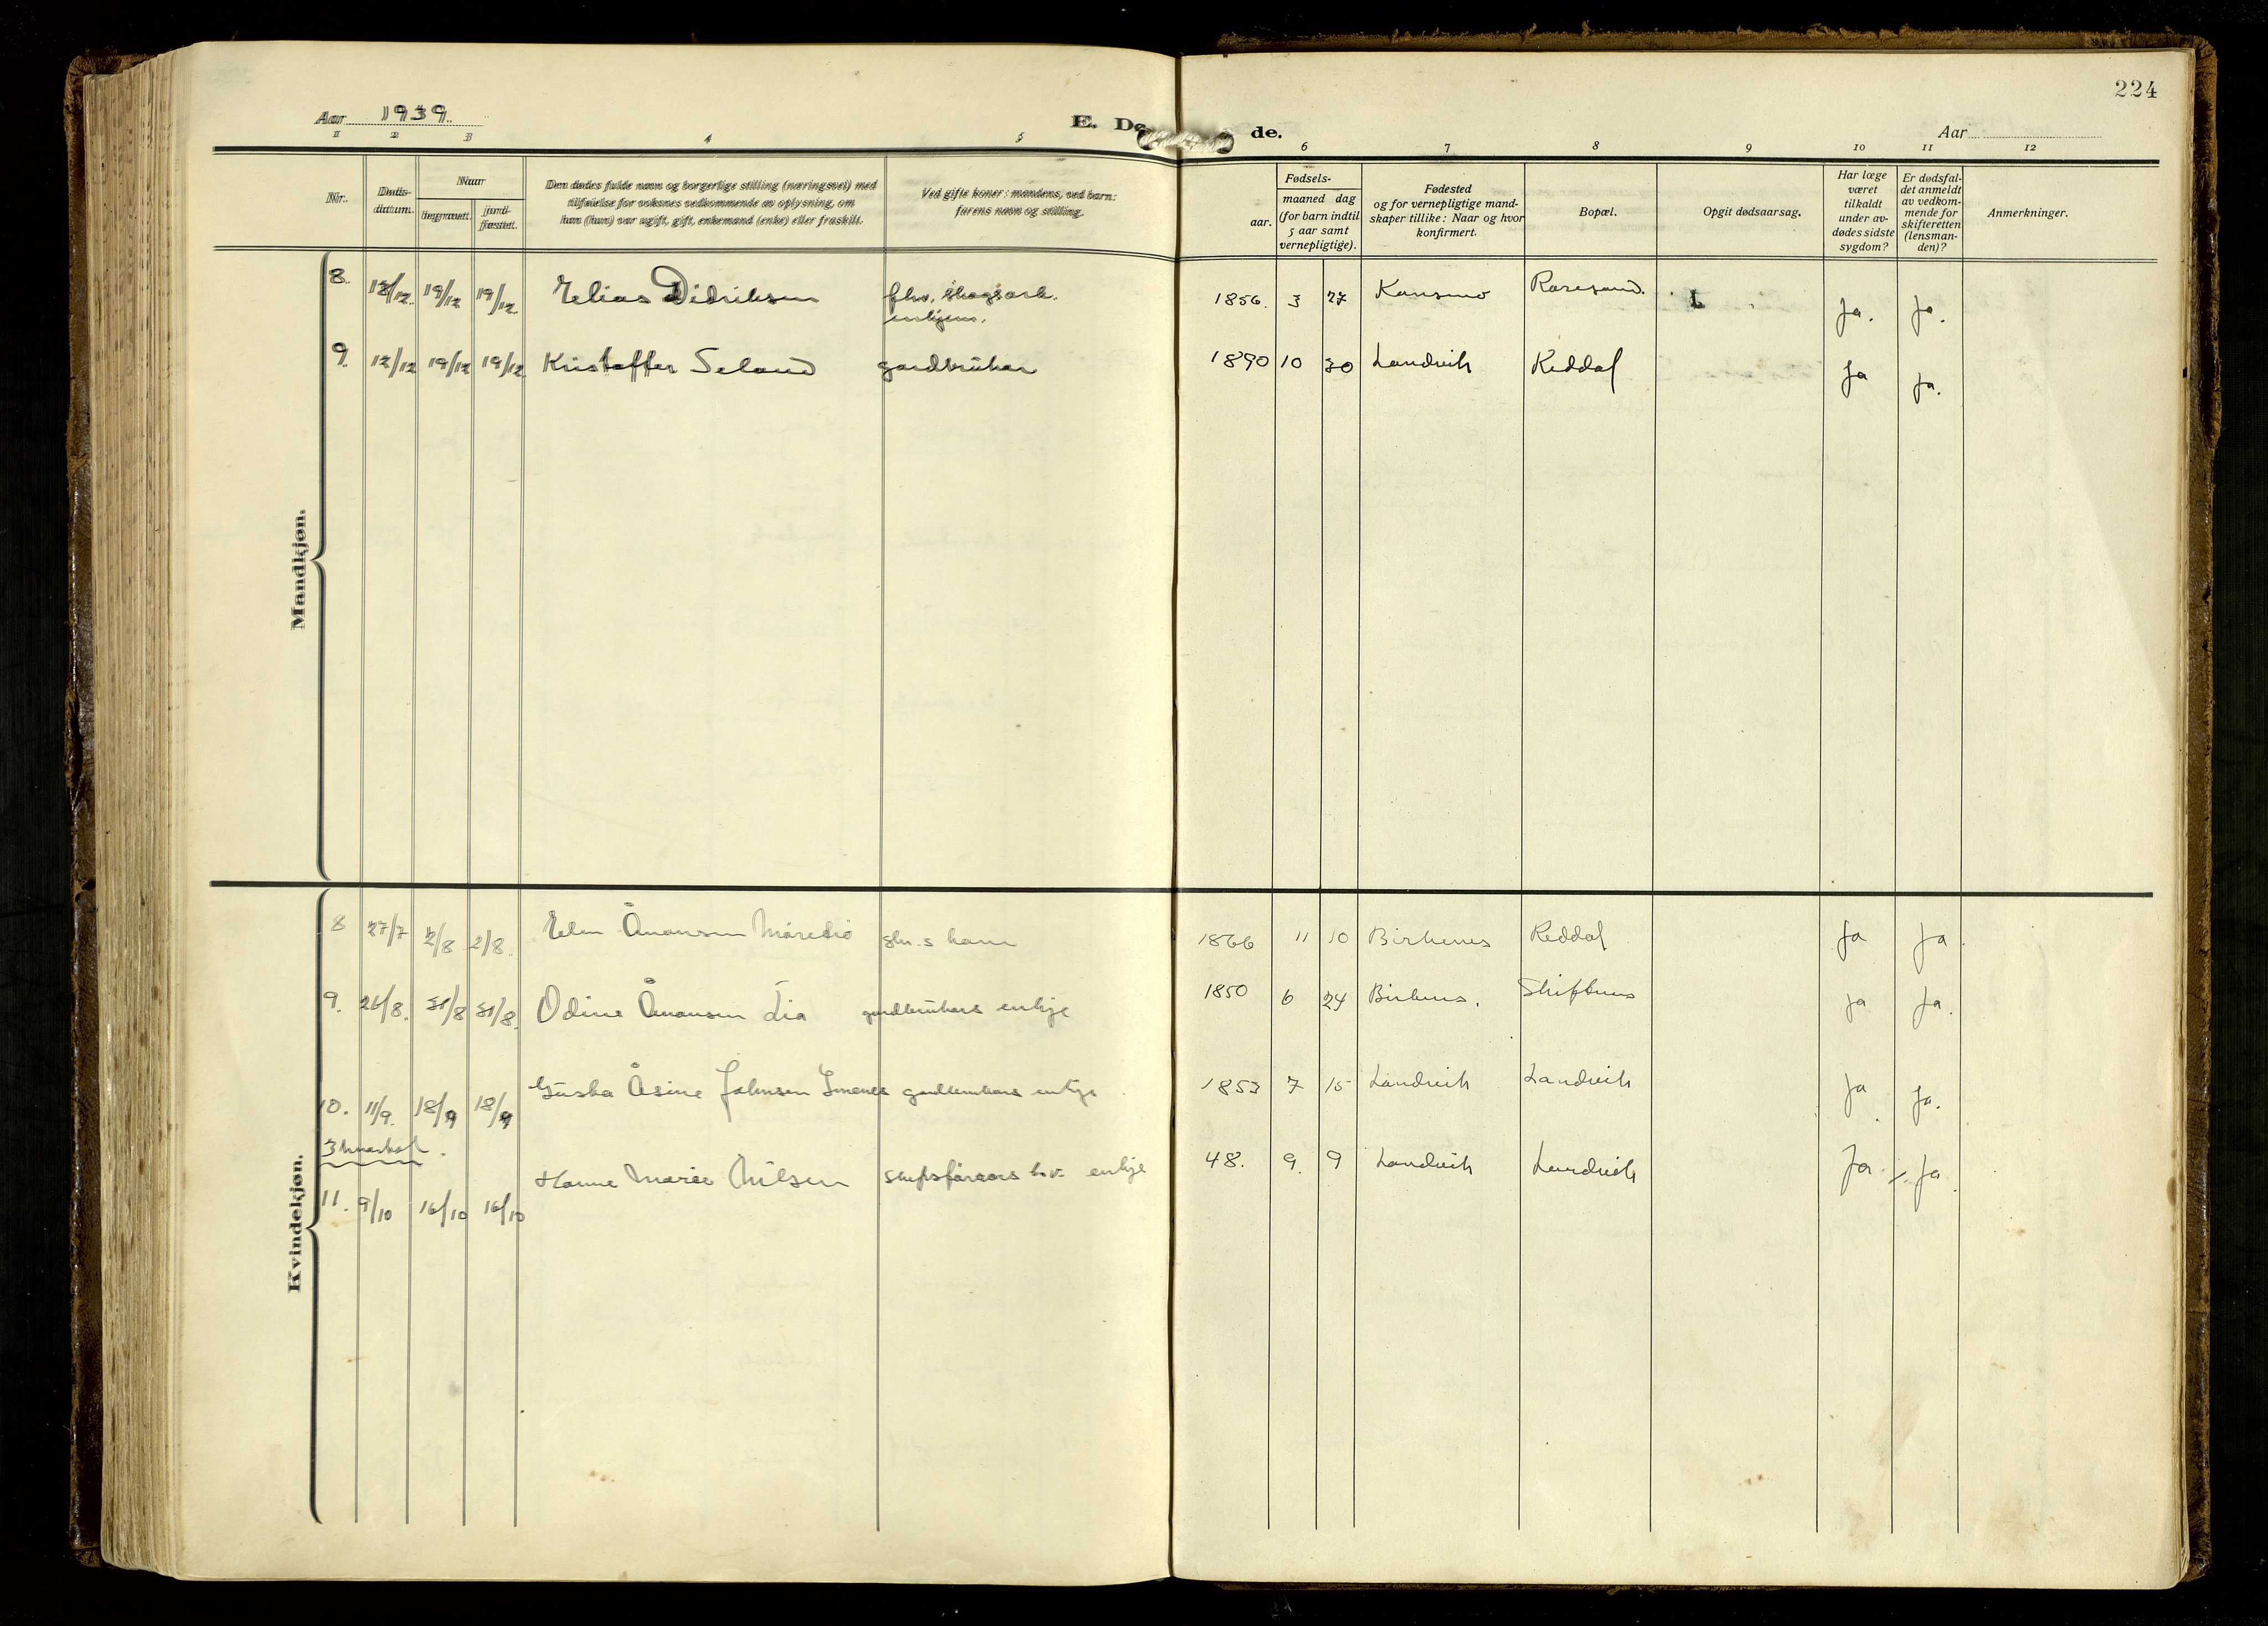 224
Aar 1939.
E. De de.
Aar
1 2 3 4 5 6 7 8 9 10 11 12
Nr.
Døds-
datum.
Naar
begravet.
jord-
fæstet.
Den dødes fulde navn og borgerlige stilling (næringsvei) med
tilføielse for voksnes vedkommende av oplysning, om
han (hun) var ugift, gift, enkemand (enke) eller fraskilt.
Ved gifte koner: mandens, ved barn:
farens navn og stilling.
Fødsels-
aar.
maaned dag
(for barn indtil
5 aar samt
vernepligtige).
Fødested
og for vernepligtige mand-
skaper tillike: Naar og hvor
konfirmert.
Bopæl.
Opgit dødsaarsag.
Har læge
været
tilkaldt
under av-
dødes sidste
sygdom?
Er dødsfal-
det anmeldt
av vedkom-
mende for
skifteretten
(lensman-
den)?
Anmerkninger.
Mandkjøn.
8. 19/12 19/12 Elias Didriksen fhv. skogsarb. 1856. 3 27 Ja. Ja.
enkjem.
9. 19/12 19/12 Kristoffer Seland gardbrukar 1890 10 30 Landvik Reddal Ja Ja.
Kvindekjøn.
8 27/7 2/8 2/8. Ånonsen kone 1866 11 10 Birkenes Reddal Ja Ja.
9. 26/8. 31/8 31/8. Odine Ånonsen Lia gardbrukars enkje 1850 6 24 Birkenes. Skiftenes Ja Ja.
10. 11/9. 18/9 18/9 Åsine Johnsen Imenes gardbrukars enkje 1853 7 15 Landvik Landvik Ja Ja.
3 kvartal.
11. 9/10 16/10 16/10 Hanne Marie Nilsen enkje 48. 9. 9 Landvik Landvik Ja Ja.